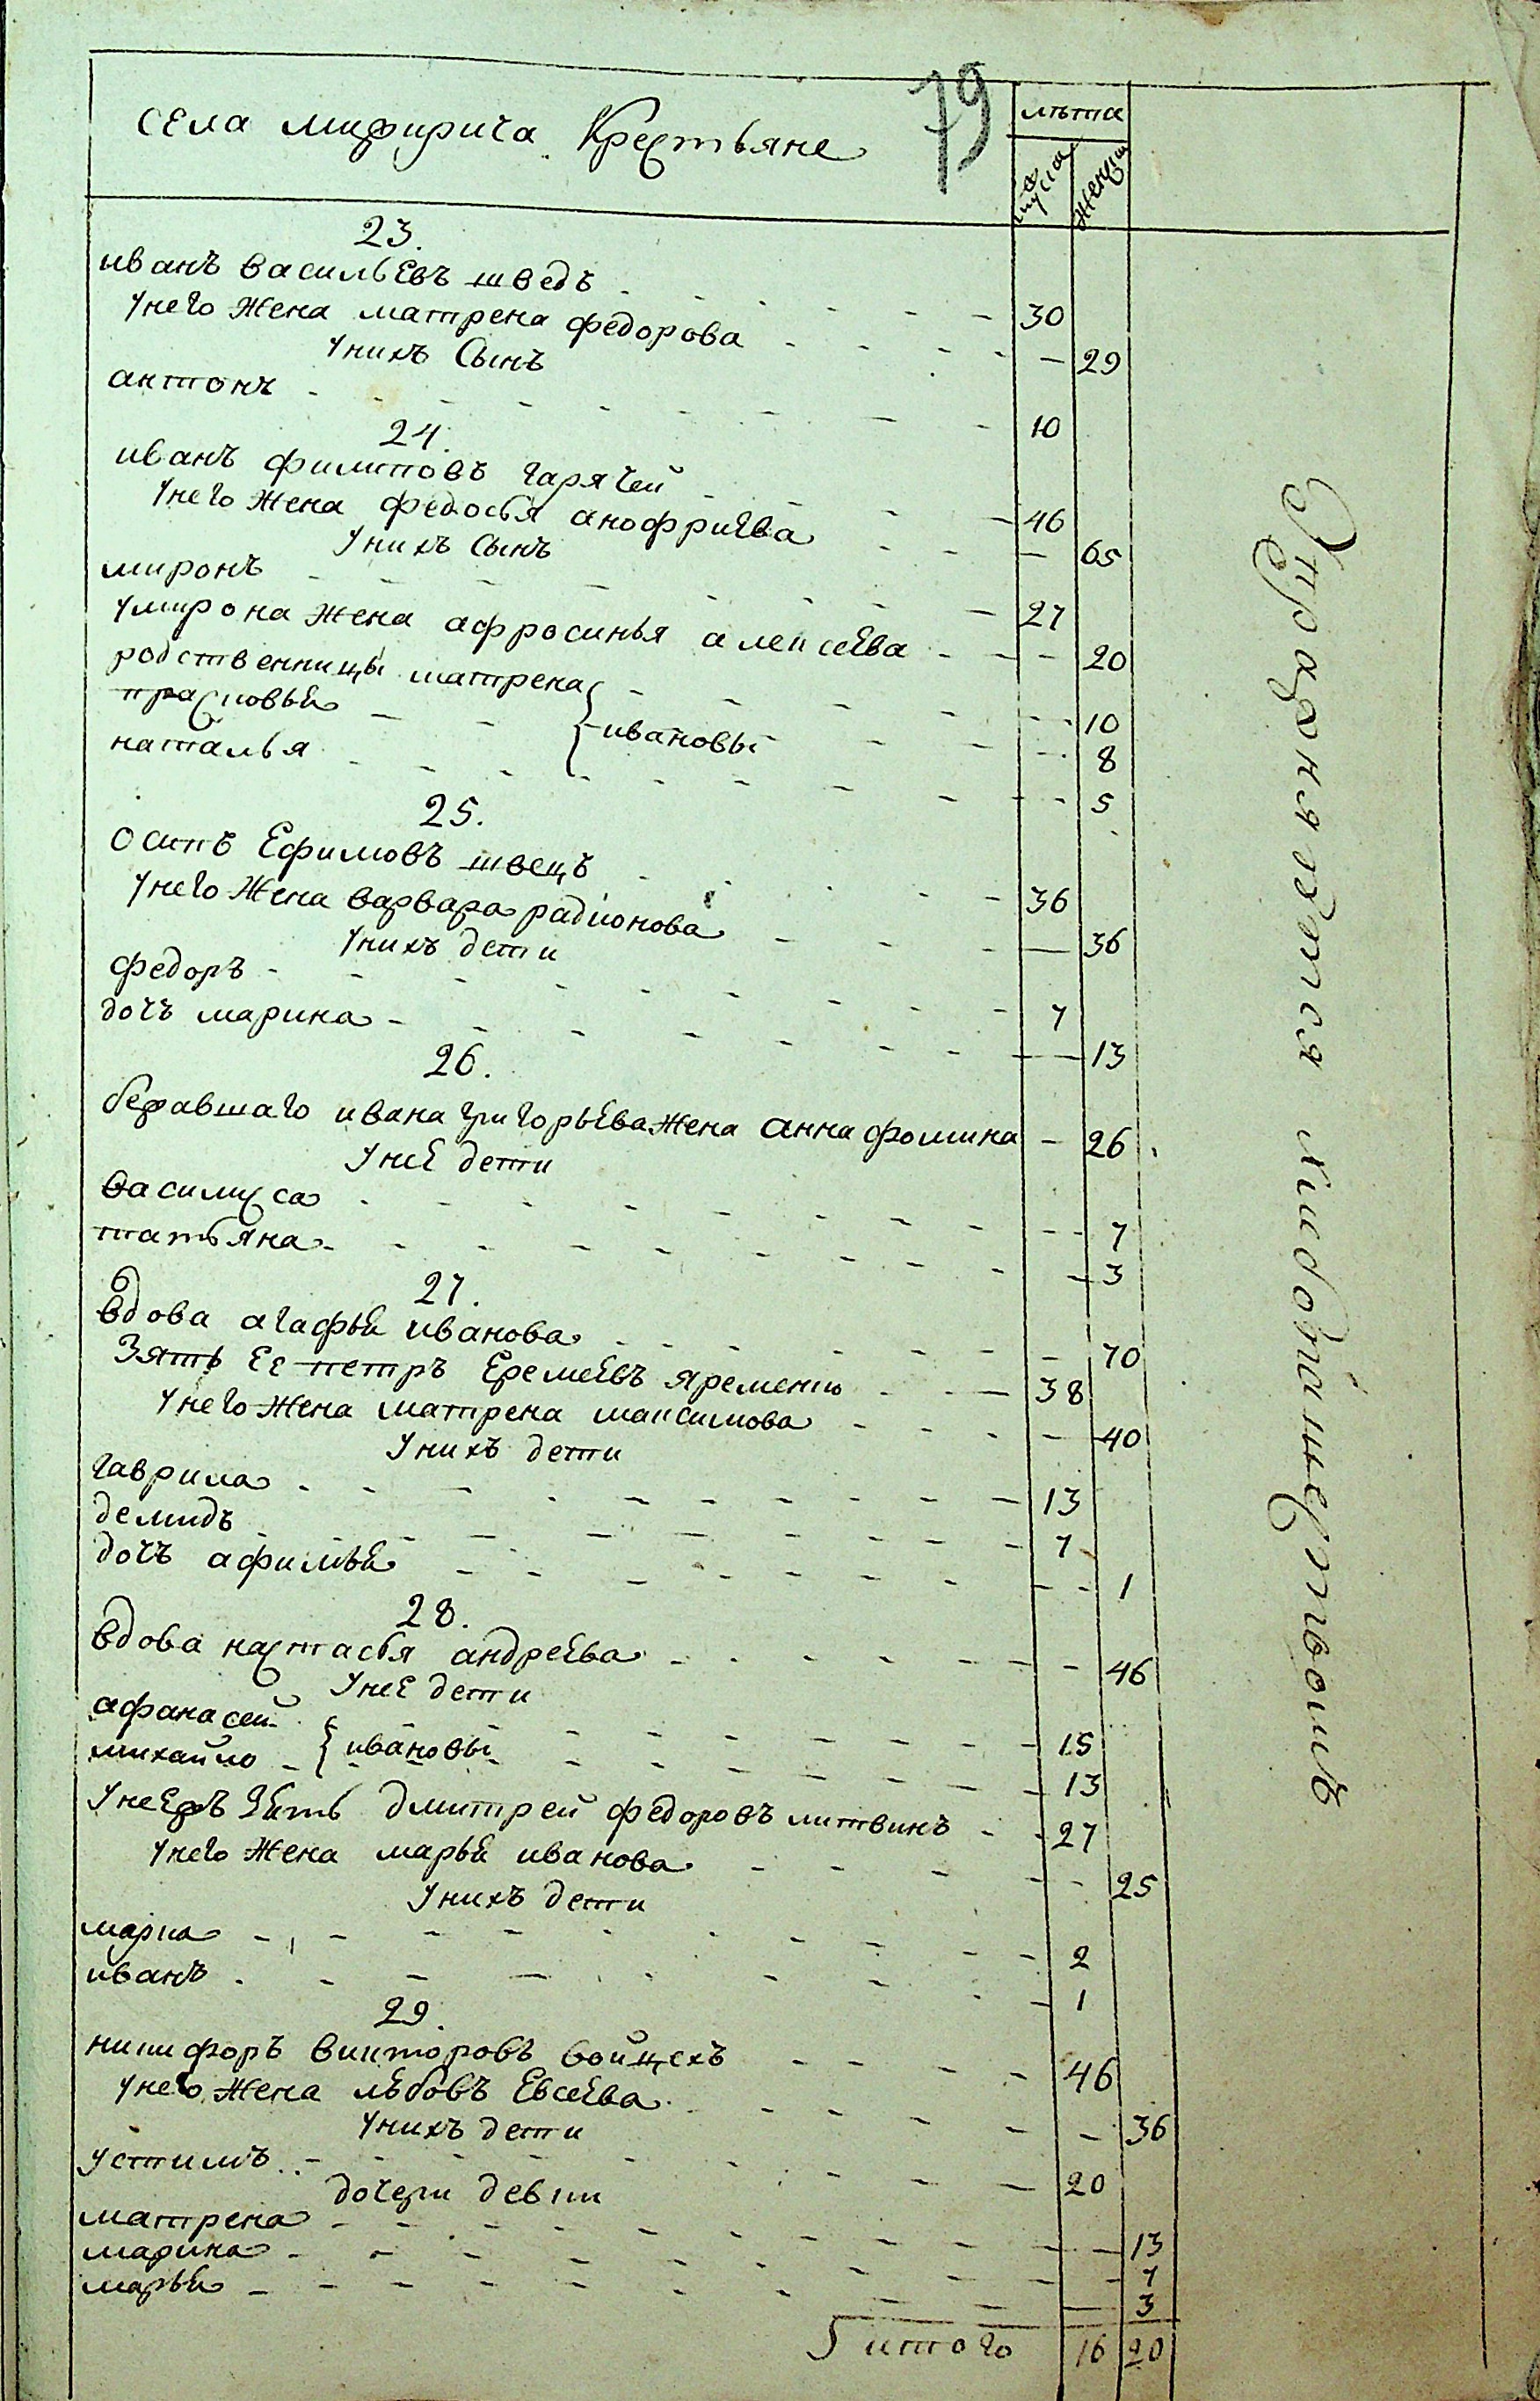 села мизирича крестьяне
79
лѣта
мужска
женска
23.
иванъ васильевъ шведъ 30
у него жена матрена федорова 29
у нихъ сынъ
антонъ 10
24.
иванъ филиповъ гарячей 46
у него жена федосья анофриева 65
у нихъ сынъ
миронъ 27
у мирона жена афросинья алексеева 20
родственницы матрена 10
прасковья } ивановы 8
наталья 5
25.
осипъ ефимовъ швецъ 36
у него жена варвара радионова 36
у нихъ дети
федоръ 7
дочъ марина 13
26.
бежавшаго ивана григорьева жена анна фомина 26
у нее дети
василиса 7
татьяна 3
27.
вдова агафья иванова 70
зять ее петръ еремеевъ яременко 38
у него жена матрена максимова 40
у нихъ дети
гаврила 13
демидъ 7
дочъ афимья 1
28.
вдова настасья андреева 46
у нее дети
афанасей 15
михайло } ивановы 13
у неежъ зять дмитрей федоровъ литвинъ 27
у него жена марья иванова 25
у нихъ дети
марко 2
иванъ 1
29.
никифоръ викторовъ войцехъ 46
у него жена любовъ евсеева 36
у нихъ дети
устимъ 20
дочери девки
матрена 13
марина 7
марья 3
итого 16 20